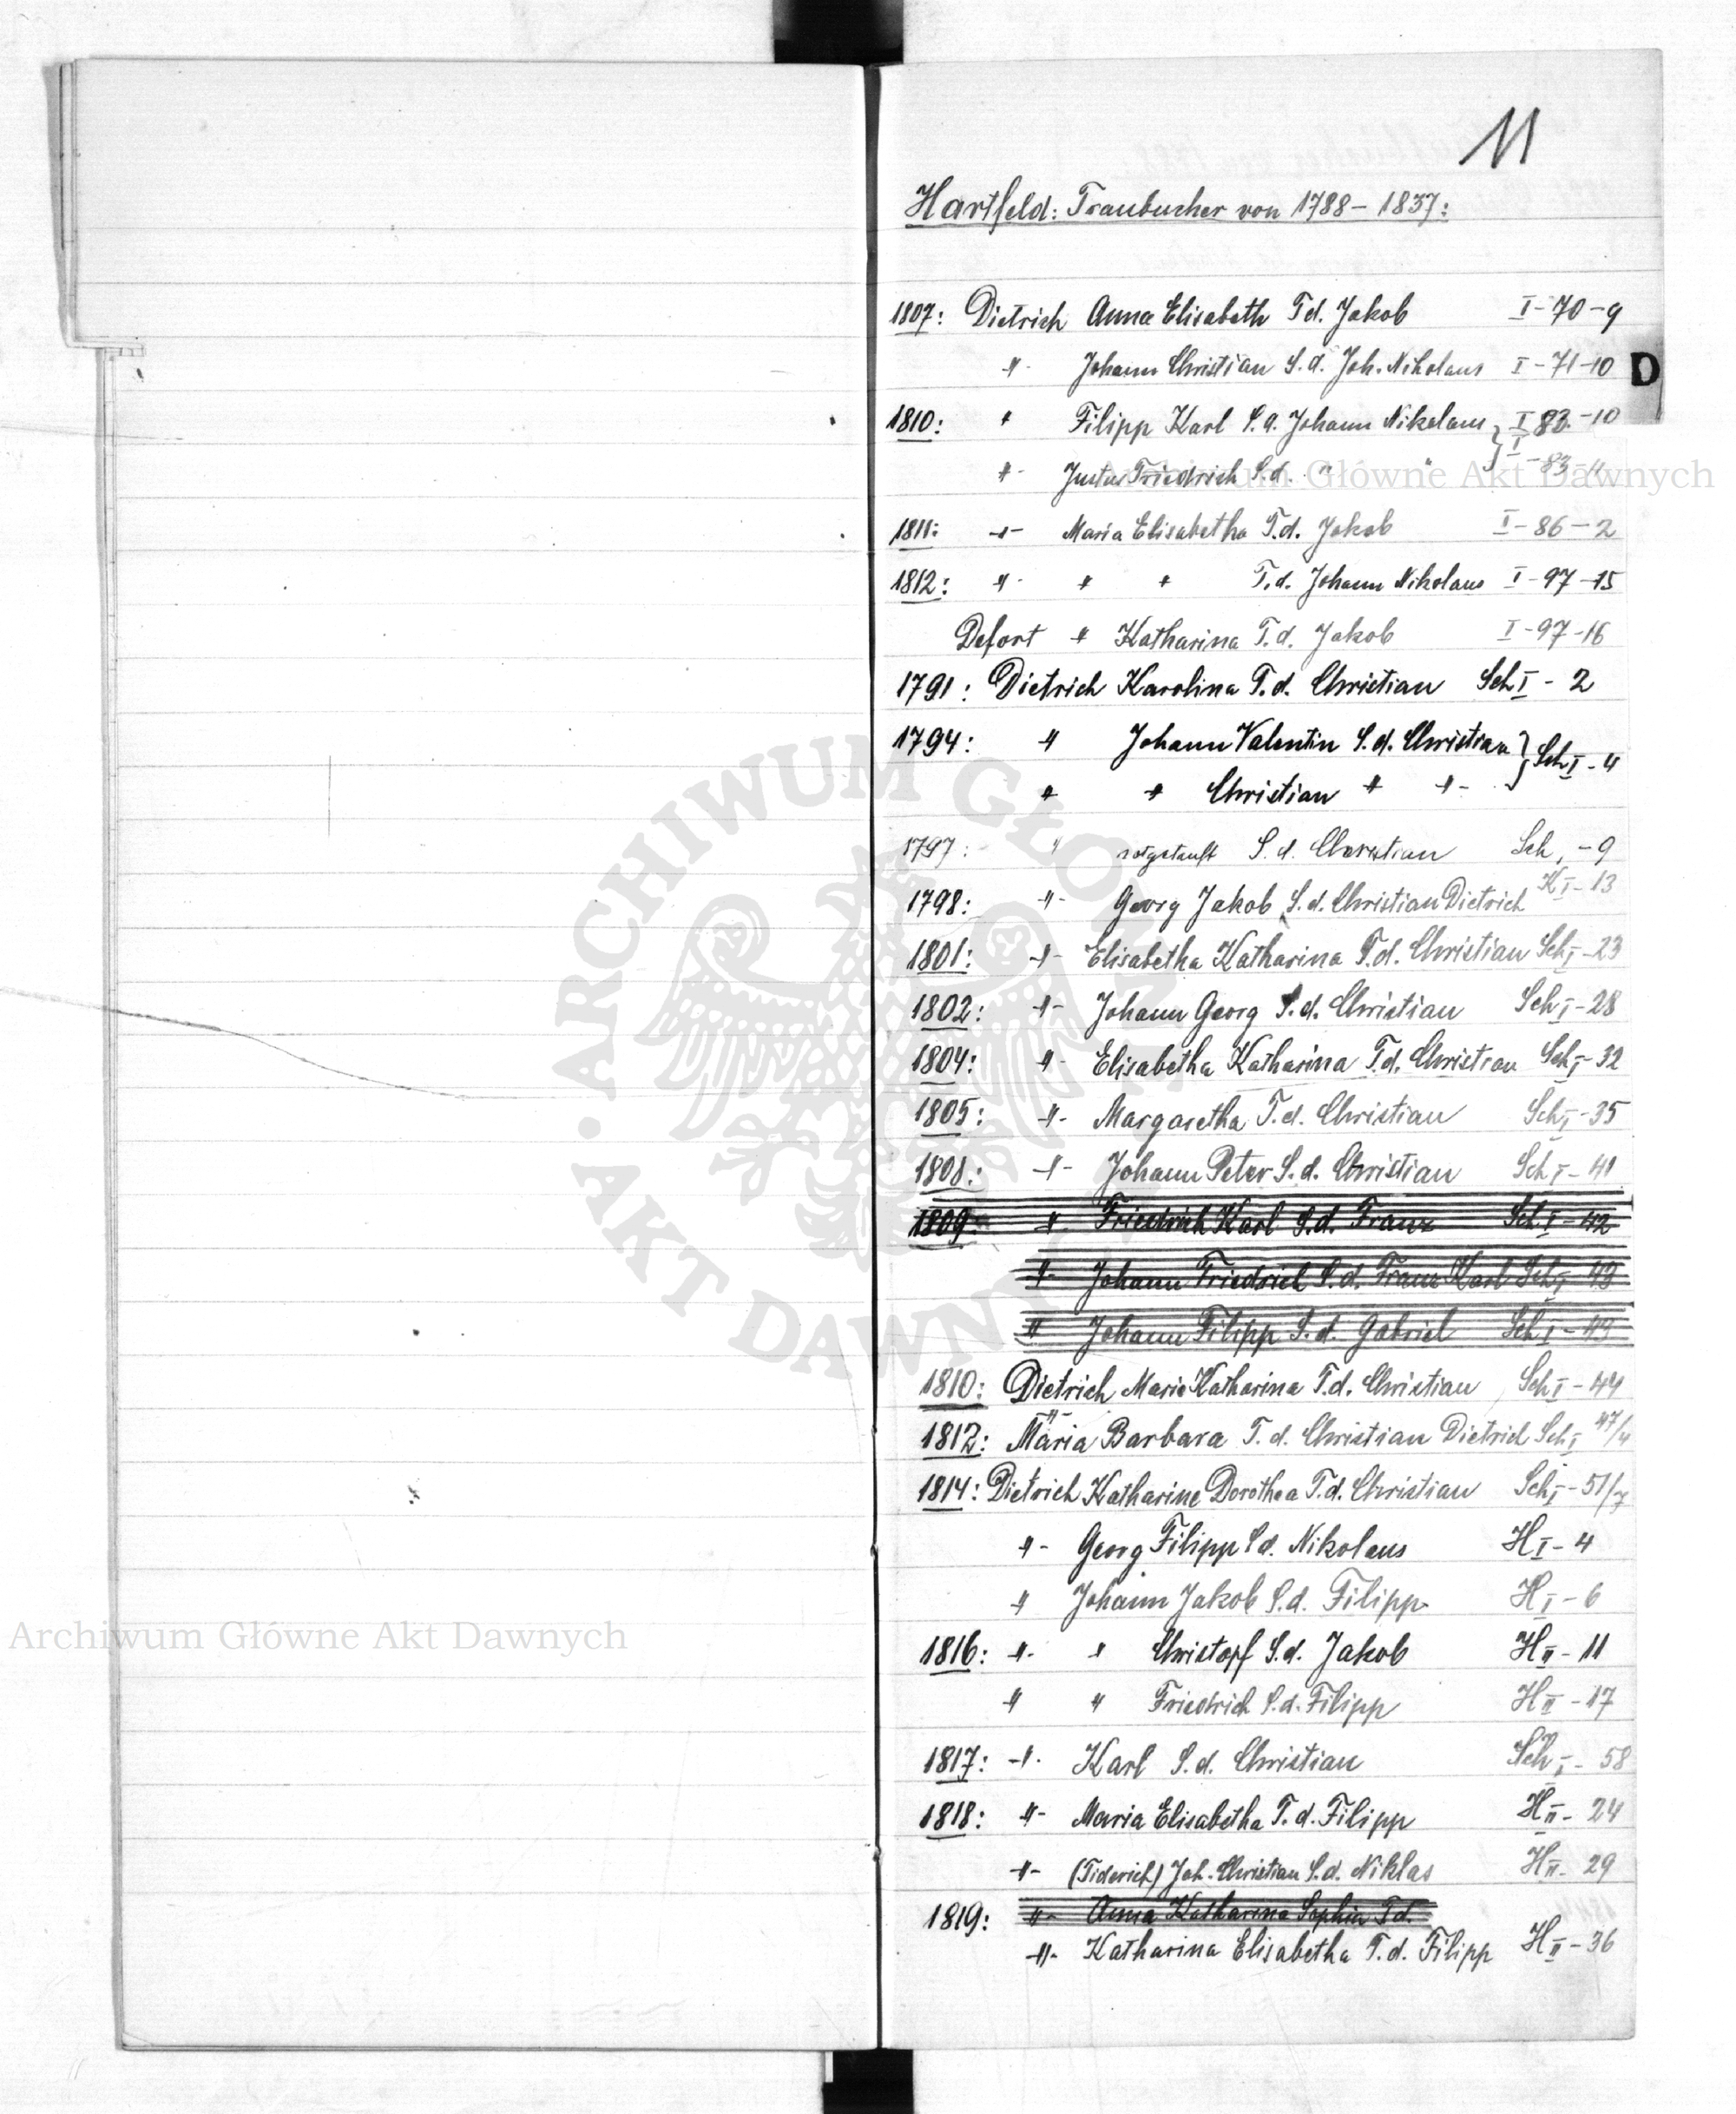 11
Hartfeld: Traubucher von 1788 – 1837:
1807: Dietrich Anna Elisabeth T d. Jakob I – 70 – 9
D
-"- Johann Christian S. d. Joh. Nikolaus I – 71 – 10
1810: " Filipp Karl S. d. Johann Nikolaus } I 83 – 10
-"- Justus Friedrich S. d. " " I – 83 – 11
Archiwum Główne Akt Dawnych
1811: -"- Maria Elisabetha T. d. Jakob I – 86 – 2
1812: -"- " " T. d. Johann Nikolaus I – 97 – 15
Defort " Katharina T. d. Jakob I – 97 – 16
1791: Dietrich Karolina T. d. Christian Sch I – 2
1794: " Johann Valentin S. d. Christian } Sch I – 4
" " Christian " -"-
1797: " notgetauft S. d. Christian Sch I – 9
1798: -"- Georg Jakob S. d. Christian Dietrich K I – 13
1801: -"- Elisabetha Katharina T. d. Christian Sch I – 23
1802: -"- Johann Georg S. d. Christian Sch I – 28
1804: -"- Elisabetha Katharina T. d. Christian Sch I – 32
1805: -"- Margaretha T. d. Christian Sch I – 35
1808: -"- Johann Peter S. d. Christian Sch I – 41
1809: -"- Friedrich Karl S. d. Franz Sch I – 42
-"- Johann Friedrich S. d. Franz Karl Sch I – 43
" Johann Filipp S. d. Gabriel Sch I – 43
1810: Dietrich Maria Katharina T. d. Christian Sch I – 44
1812: -"- Maria Barbara T. d. Christian Dietrich Sch I 47/4
1814: Dietrich Katharine Dorothea T. d. Christian Sch I – 51/7
-"- Georg Filipp S d. Nikolaus H I – 4
" Johann Jakob S. d. Filipp H I – 6
Archiwum Główne Akt Dawnych
1816: -"- " Christopf S. d. Jakob H II – 11
" " Friedrich S. d. Filipp H II – 17
1817: -"- Karl S. d. Christian Sch I – 58
1818: -"- Maria Elisabetha T. d. Filipp H II – 24
-"- (Tiderich) Joh. Christian S. d. Niklas H II – 29
1819: -"- Anna Katharina Sophia T d.
-"- Katharina Elisabetha T. d. Filipp H II – 36
ARCHIWUM GŁÓWNE AKT DAWNYCH